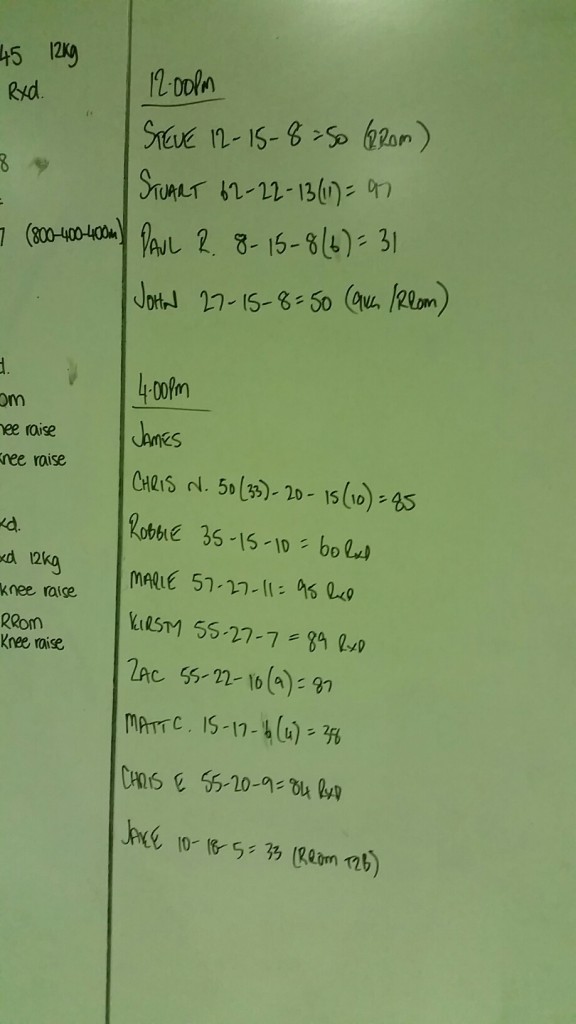 45 12kg
Rxd.
8
7 (800-400-400m)
d.
om
nee raise
knee raise
xd.
xd 12kg
knee raise
RRom
Knee raise
12.00pm
STEVE 12-15-8=50 (RRom)
STUART 62-22-13(11)= 97
PAUL R. 8-15-8(6)= 31
JOHN 27-15-8=50 (9kg/RRom)
4.00pm
JAMES
CHRIS N. 50(33)-20-15(10)=85
ROBBIE 35-15-10=60 RxD
MARIE 57-27-11= 95 RxD
KIRSTY 55-27-7=89 RxD
ZAC 55-22-10(9)=87
MATT C. 15-17-6(4)=38
CHRIS E 55-20-9=84 RxD
JAKE 10-18-5=33 (RRom T2B)